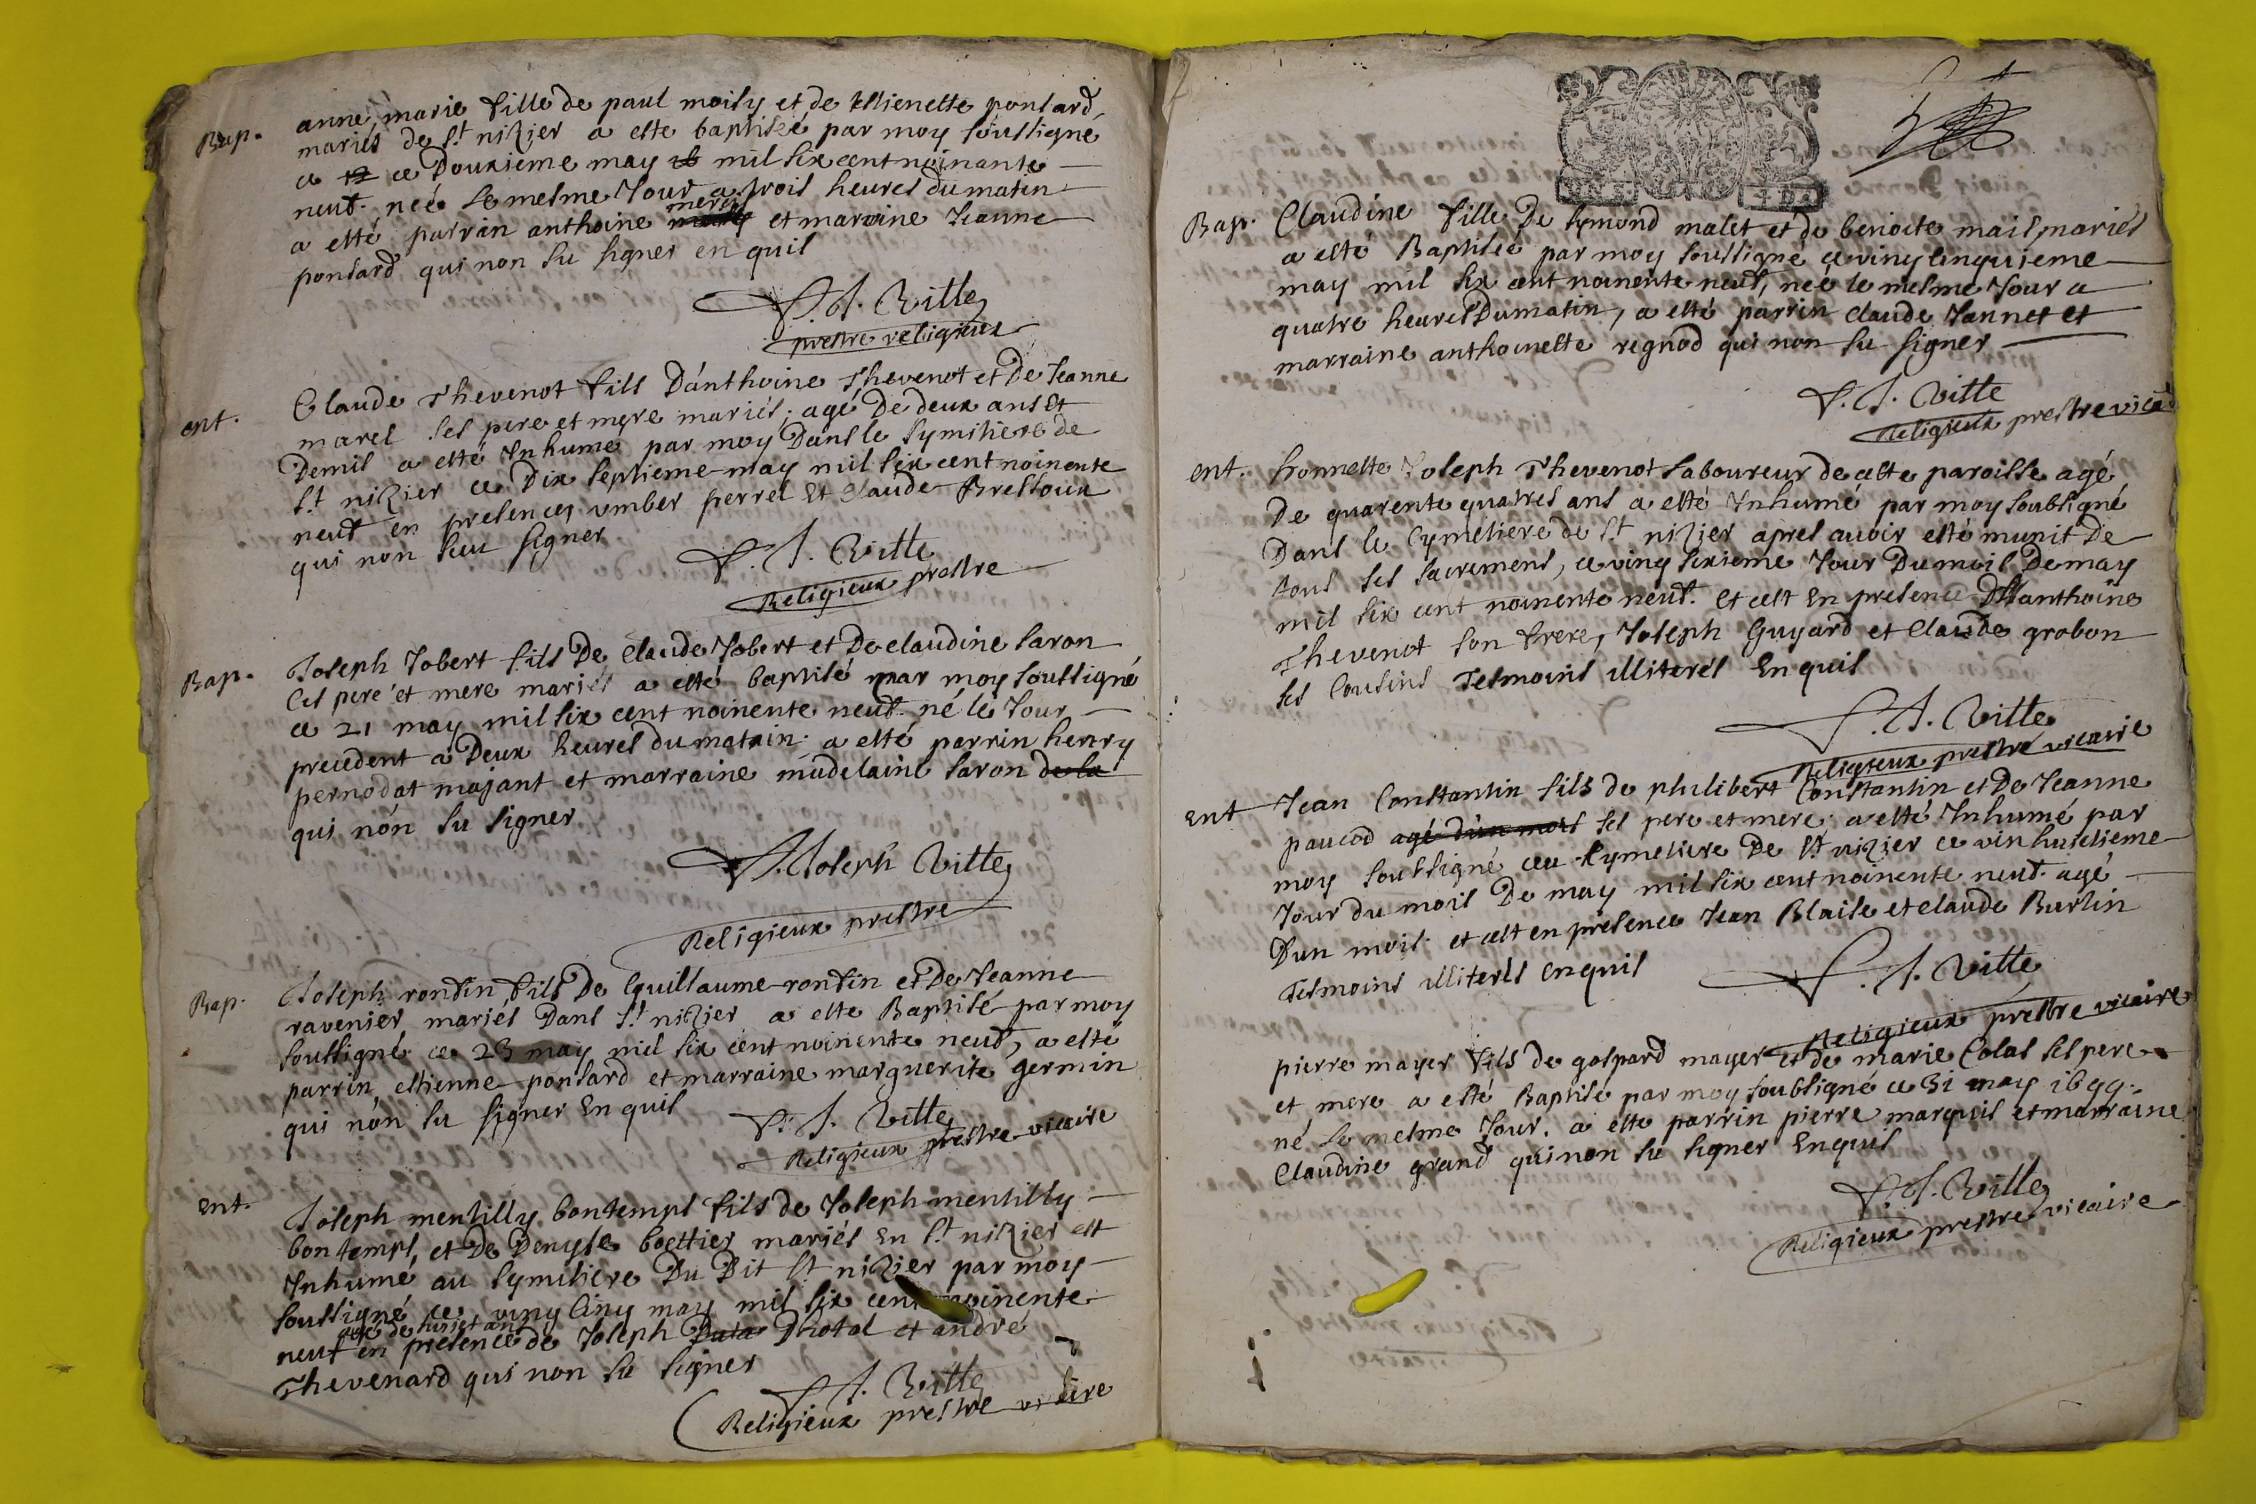 Bap.
anne marie fille de paul moisy et de estienette ponsard
mariés de St nizier a esté baptiseé par moy soussigne
ce 12 ce Douzieme may mil six cent noinante
neuf. neé le mesme Jour a trois heures du matin
a esté parrin anthoine mercy et maraine Jeanne
ponsard qui non su signer en quil
F. J. Vitte
prestre religieux
ent.
Claude Thevenot fils D'anthoine Thevenot et De Jeanne
marel ses pere et mere mariés, agé De deux ans Et
Demis a esté Inhumé par moy Dans le symitiere de
St nizier ce Dix septieme may mil six cent noinente
neuf en presences umber perret Et claude Bressoux
qui non sceu signer
F. J. Vitte
Religieux prestre
Bap.
Joseph Jobert fils De claude Jobert et De claudine saron
Ces pere et mere mariés a esté baptisé par moy soussigné
ce 21 may mil six cent noinente neuf. né le Jour
precedent a Deux heures du matain. a esté parrin henry
pernodat majant et marraine madelaine saron de la
qui non su signer
F. Joseph Vitte
Religieux prestre
Bap.
Joseph ronfin fils De Guillaume ronfin et De Jeanne
ravenier mariés Dans St nizier a esté Baptisé par moy
soussigné ce 23 may mil six cent noinente neuf, a esté
parrin estienne ponsard et marraine marguerite germin
qui non su signer En quil
F. J. Vitte
Religieux prestre vicaire
ent.
Joseph mentilly bontemps fils de Joseph mentilly
bontemps et De Denyse boettier mariés En St nizier est
Inhumé au symitiere Du Dit St nizier par moy
soussigné ce ving Cinq may mil six cent noinente
neuf en presence de Joseph Drotal et andre
Thevenard qui non su signer
F. J. Vitte
Religieux prestre vicaire
Bap.
Claudine fille De Symond malet et de benoite mais mariés
a esté Baptiseé par moy soussigné ce ving cinquieme
may mil six cent noinente neuf, neé le mesme Jour a
quatre heures Du matin, a esté parrin claude Jannet et
marraine anthoinette regnod qui non su signer
F. J. Vitte
Religieux prestre vicaire
ent.
honnette Joseph Thevenot laboureur de cette paroisse agé
De quarente quatres ans a esté Inhumé par moy soubsigné
Dans le Cymetiere de St nizier apres avoir esté munit De
tous ses sacremens, ce ving sixieme Jour Du mois De may
mil six cent noinente neuf. et cest En presence D'anthoine
Thevenot son frere, Joseph Guyard et Claude grobon
ses Cousins Tesmoins illiterés En quil
F. J. Vitte
Religieux prestre vicaire
ent
Jean Constantin fils de philibert Constantin et De Jeanne
paucod agé d'un mois ses pere et mere. a esté Inhumé par
moy soubsigné au Cymetiere De St nizier ce vin huictieme
Jour du mois De may mil six cent noinente neuf. agé
Dun mois. et cest en presence Jean Blaise et claude Burlin
Tesmoins illiterés en quil
F. J. Vitte
Religieux prestre vicaire
pierre mayer fils de gaspard mayer et de marie Colas ses pere
et mere a esté Baptisé par moy soubsigné ce 31 may 1699.
né le mesme Jour. a esté parrin pierre marquis et marraine
Claudine grand qui non su signer En quil
F. J. Vitte
Religieux prestre vicaire